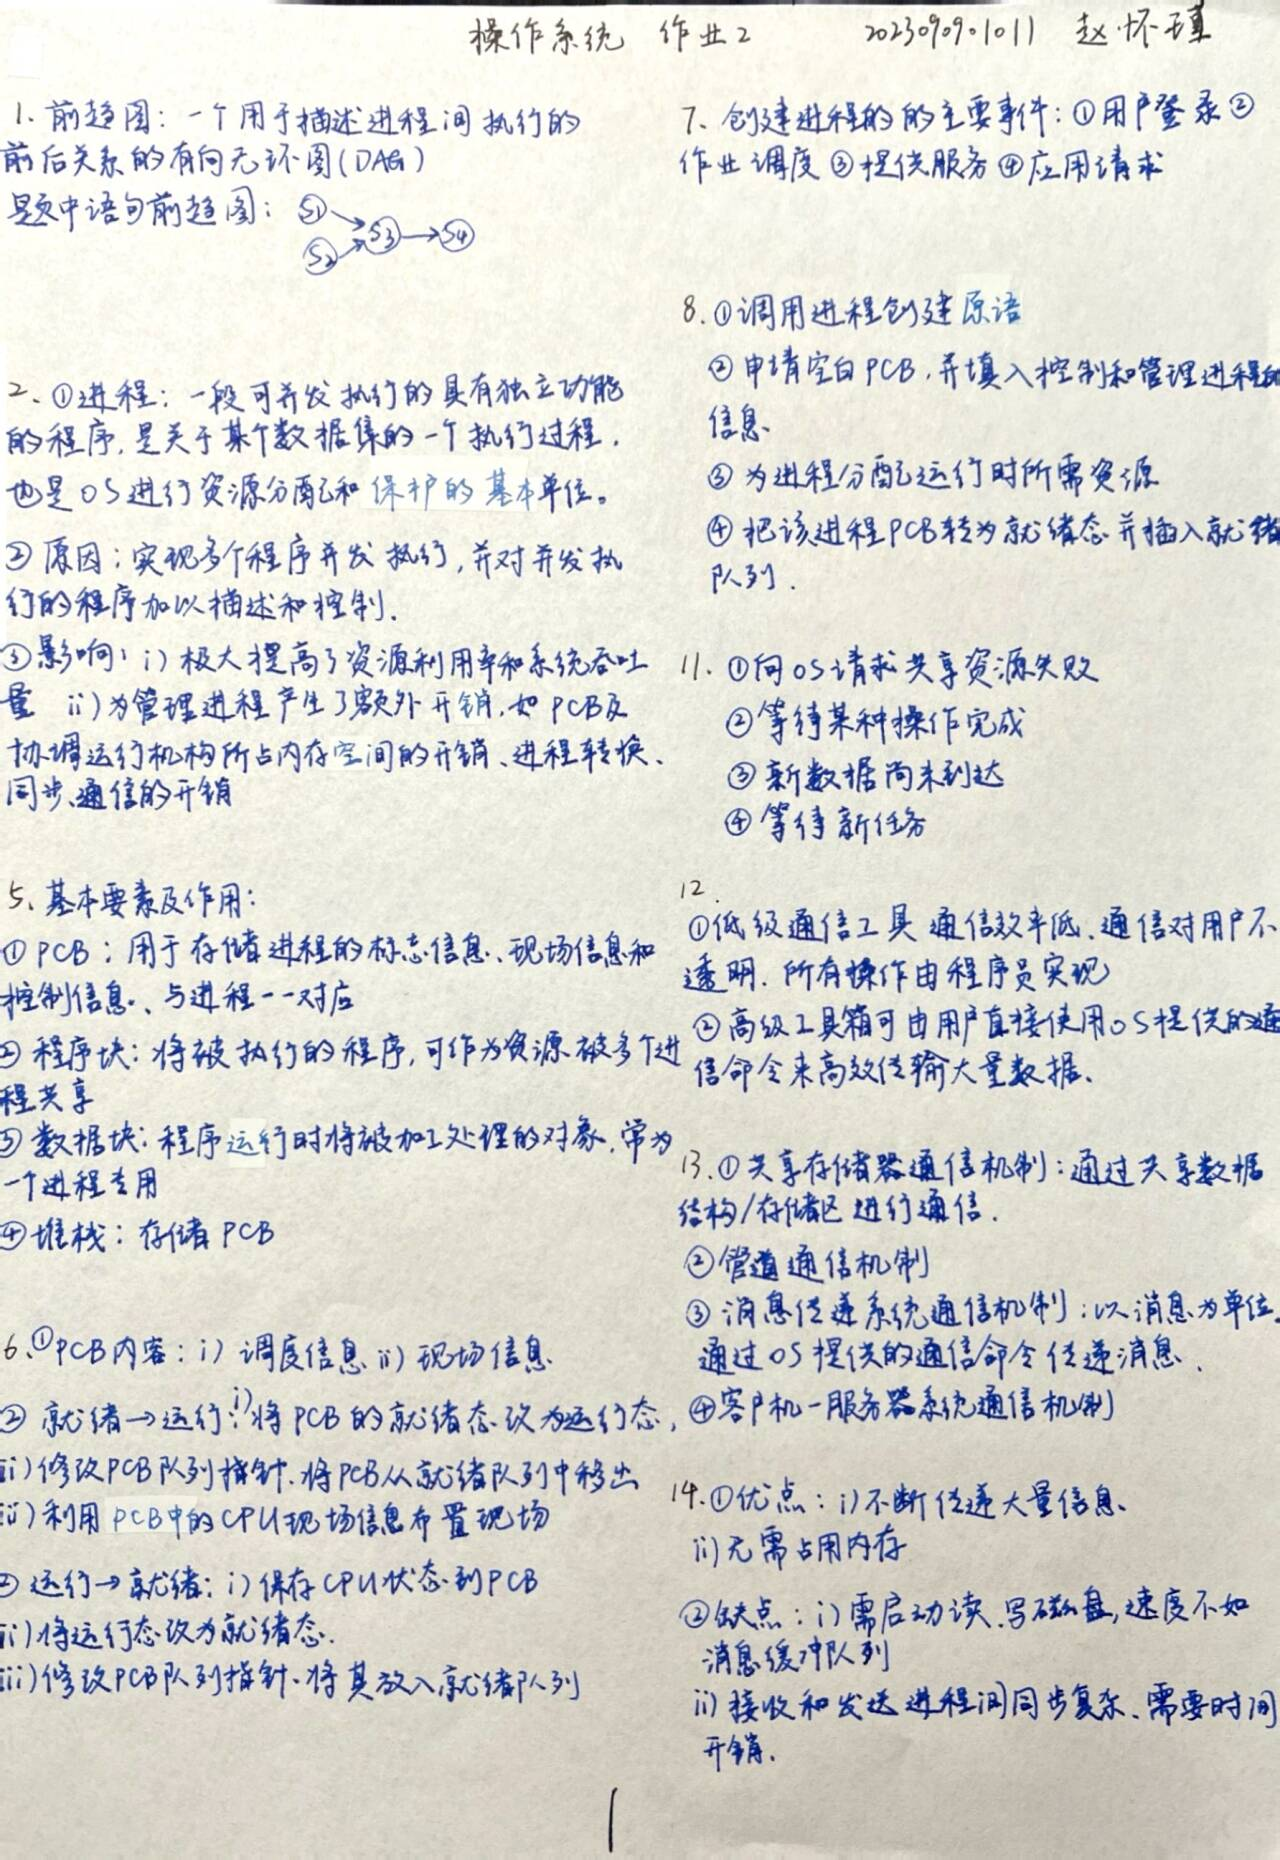 操作系统 作业2 2023090901011 赵怀瑾
1. 前趋图：一个用于描述进程间执行的
前后关系的有向无环图(DAG)
题中语句前趋图： S1 S2 S3 S4
2、①进程：一段可并发执行的具有独立功能
的程序，是关于某个数据集的一个执行过程，
也是OS进行资源分配和保护的基本单位。
②原因：实现多个程序并发执行，并对并发执
行的程序加以描述和控制.
③影响：i)极大提高了资源利用率和系统吞吐
量 ii)为管理进程产生了额外开销，如PCB及
协调运行机构所占内存空间的开销、进程转换、
同步、通信的开销
5、基本要素及作用：
①PCB：用于存储进程的标志信息、现场信息和
控制信息、与进程一一对应
②程序块：将被执行的程序，可作为资源被多个进
程共享
③数据块：程序运行时将被加工处理的对象，常为
一个进程专用
④堆栈：存储PCB
6、①PCB内容：i)调度信息 ii)现场信息
②就绪→运行：i)将PCB的就绪态改为运行态，
ii)修改PCB队列指针、将PCB从就绪队列中移出
iii)利用PCB中的CPU现场信息布置现场
②运行→就绪：i)保存CPU状态到PCB
ii)将运行态改为就绪态.
iii)修改PCB队列指针、将其放入就绪队列
7、创建进程的的主要事件：①用户登录②
作业调度③提供服务④应用请求
8.①调用进程创建原语
②申请空白PCB，并填入控制和管理进程的
信息.
③为进程分配运行时所需资源
④把该进程PCB转为就绪态并插入就绪
队列.
11.①向OS请求共享资源失败
②等待某种操作完成
③新数据尚未到达
④等待新任务
12.
①低级通信工具 通信效率低、通信对用户不
透明.所有操作由程序员实现
②高级工具箱可由用户直接使用OS提供的通
信命令来高效传输大量数据.
13.①共享存储器通信机制：通过共享数据
结构/存储区进行通信.
②管道通信机制
③消息传递系统通信机制：以消息为单位.
通过OS提供的通信命令传递消息.
④客户机-服务器系统通信机制
14.①优点：i)不断传递大量信息、
ii)无需占用内存
②缺点：i)需启动读、写磁盘，速度不如
消息缓冲队列
ii)接收和发送进程间同步复杂、需要时间
开销.